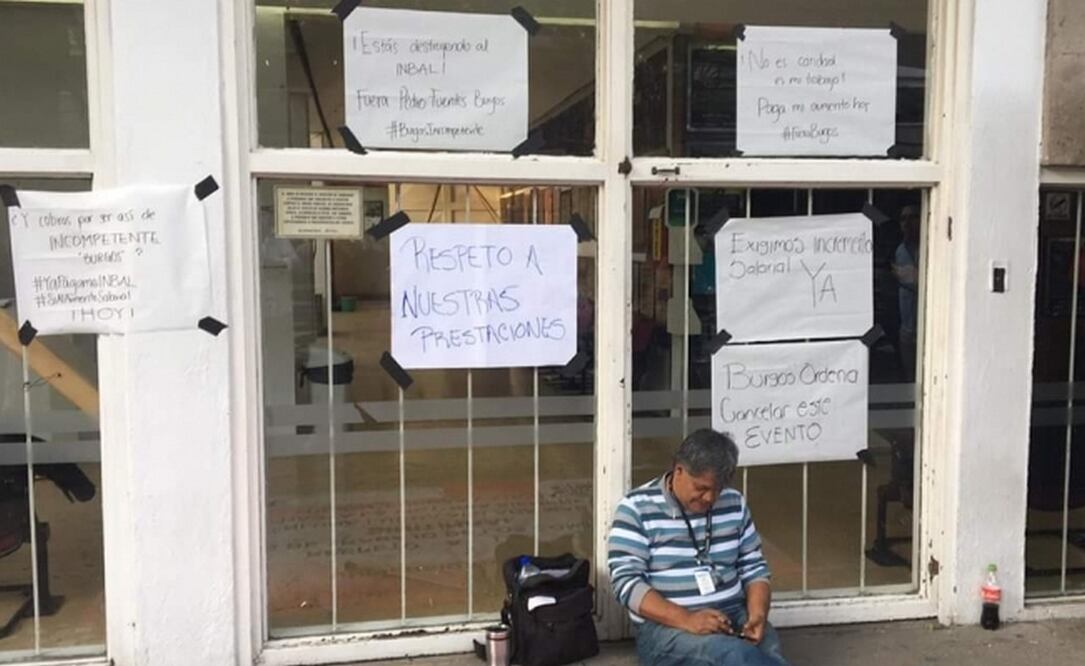 ¡Estás destruyendo al
INBAL!
Fuera Pedro Fuentes Burgos
#BurgosIncompetente
¡No es caridad
es mi trabajo!
Paga mi aumento hoy
#FueraBurgos
¿Y cobras por ser así de
INCOMPETENTE
"BURGOS"?
#YaPágameINBAL
#SiAlAumentoSalarial
¡HOY!
RESPETO A
NUESTRAS
PRESTACIONES
Exigimos incremento
Salarial
YA
Burgos Ordena
Cancelar este
EVENTO